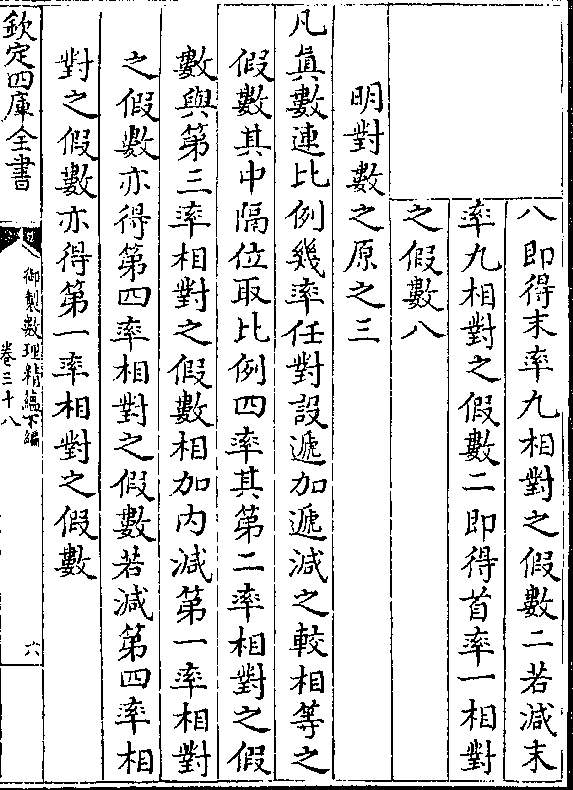 八即得末率九相對之假數二若減末
率九相對之假數二即得首率一相對
之假數八
明對數之原之三
凡真數連比例幾率任對設遞加遞減之較相等之
假數其中隔位取比例四率其第二率相對之假
數與第三率相對之假數相加内減第一率相對
之假數亦得第四率相對之假數若減第四率相
對之假數亦得第一率相對之假數
欽定四庫全書
御製數理精藴下編
卷三十八
六